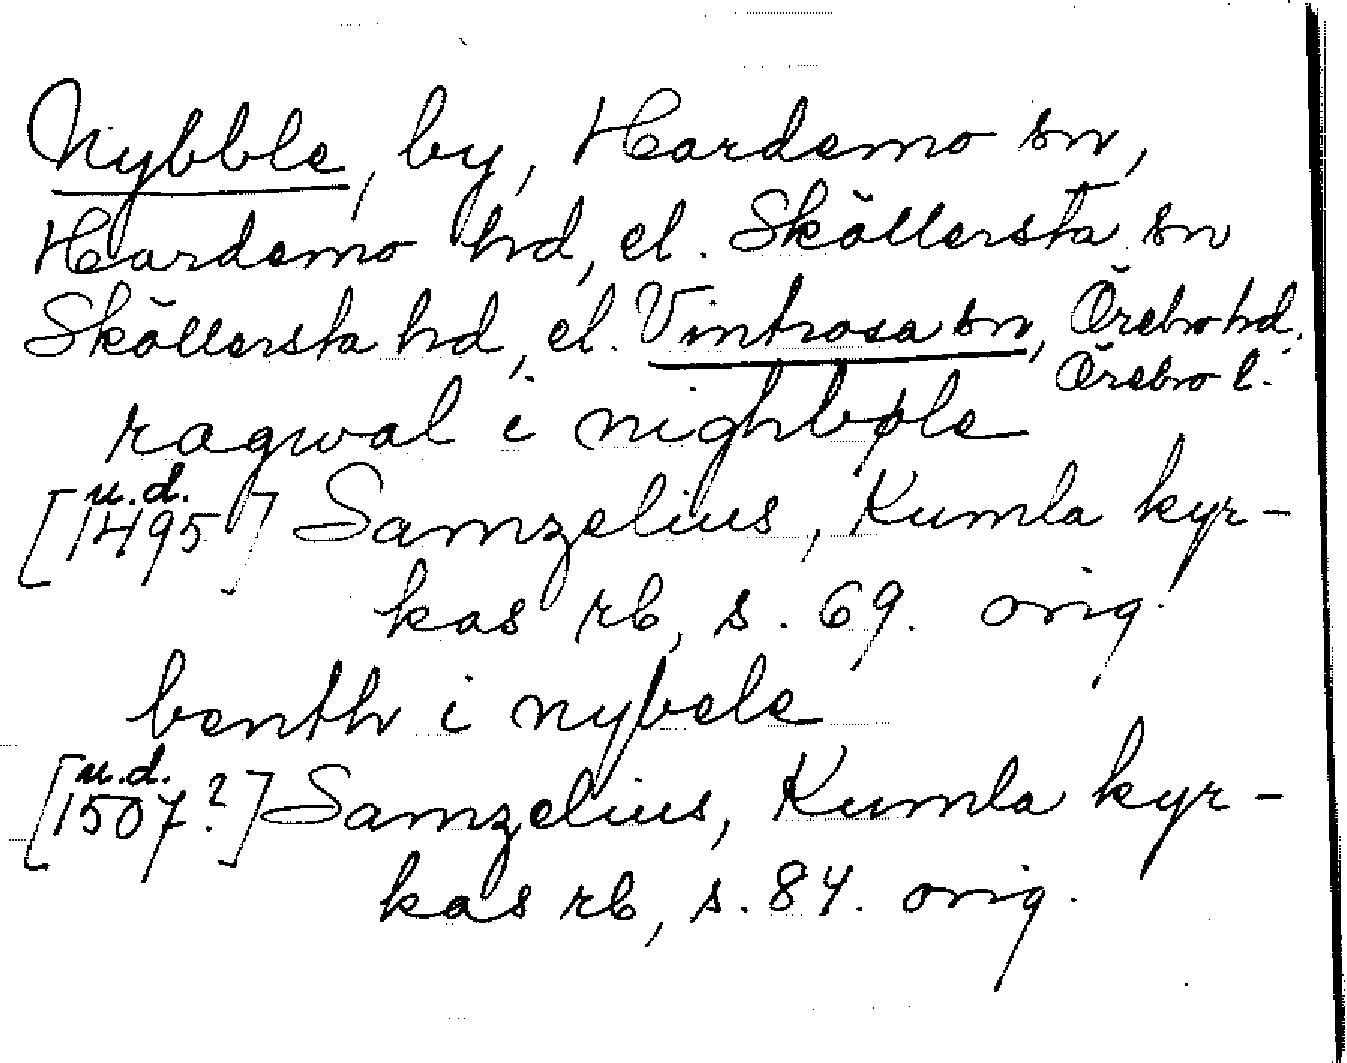 Nybble, by, Hardemo sn,
Hardemo hd, el. Sköllersta sn
Sköllersta hd, el. Vintrosa sn, Örebro hd.
Örebro l.
ragwal i nighbøle
[u.d. 1495] Samzelius, Kumla kyr-
kas rb, s. 69. orig.
benth i nybele
[u.d. 1507?] Samzelius, Kumla kyr-
kas rb, s. 84. orig.